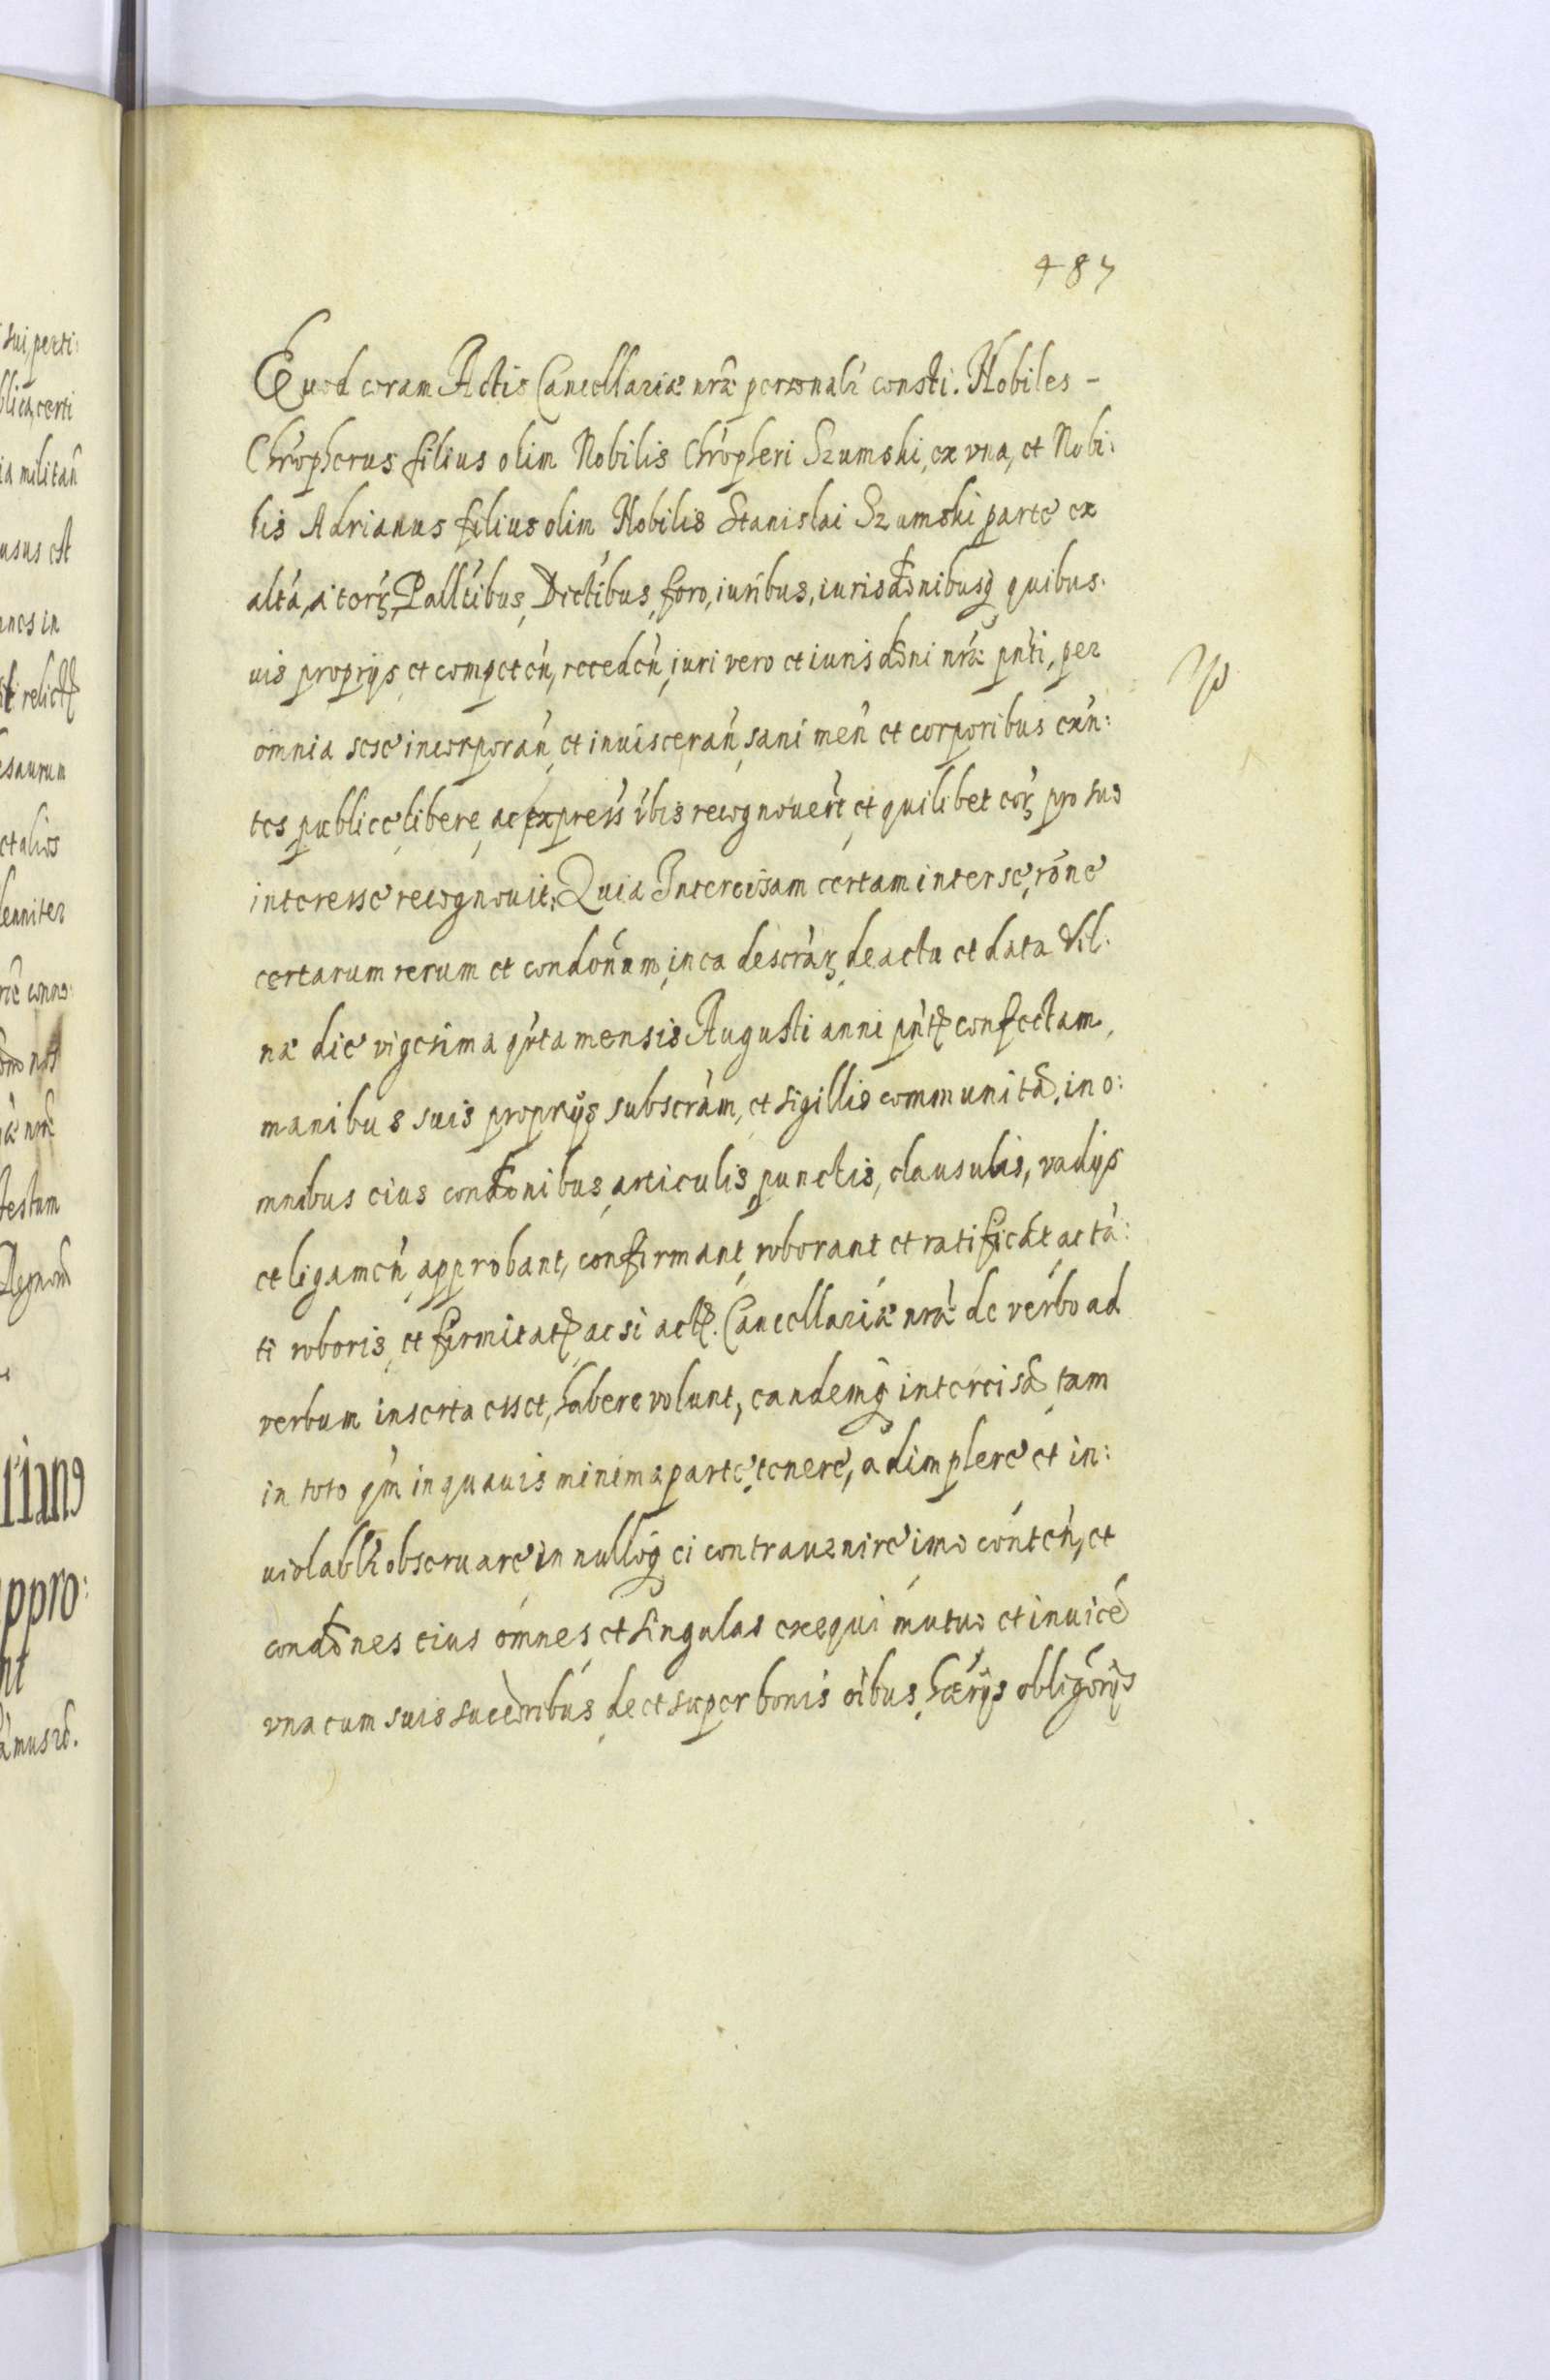 487
Quod coram Actis Cancellariæ nr̃æ personalr̃ consti. Nobiles -
Chr̃opherus filius olim Nobilis Chr̃opheri Szumski, ex vna, et Nobi:
lis Adrianus filius olim Nobilis Stanislai Szumski parte ex
altá, á terŕꝝ Pallt́ibus, Dictíbus, foro, iuríbus, iurisdõnibusq́ quibus.
uis proprijs, et competeń, recedeń, iuri vero et iurisdõni nr̃æ pńti, per
omnia sese incorporań, et inuisceráń, sani meń et corporibus exń:
tes, publice, libere, ac expreśś v́bis recognoueŕt, et quilibet eoŕꝝ pro suo
interesse recognouit: Quia Intercisam certam inter se, rõne
certarum rerum et condońum, in ea descráꝝ, de actu et data Vil:
næ die vigesima qŕta mensis Augusti anni pńtꝭ confectam,
manibus suis proprijs subscrám, et sigillis communitã, in o:
mnibus eius condõnibus, articulis, punctis, clausulis, vadijs
et ligameń, approbant, confirmant, roborant et ratificãt ac tá:
ti roboris, et firmitatꝭ, ac si actꝭ. Cancellariæ nr̃æ de verbo ad
verbum inserta esset, habere volunt, eandemq́ intercisã, tam
in toto qḿ in quauis minima parte, tenere, adimplere et in:
uiolablr̃ obseruare in nulloq́ ei contrauenire imo cónteń, et
condõnes eius omnes, et singulas exequi mutuo et inuicẽ
vna cum suis succõribus, de et super bonis oíbus, hæŕijs obligórijs